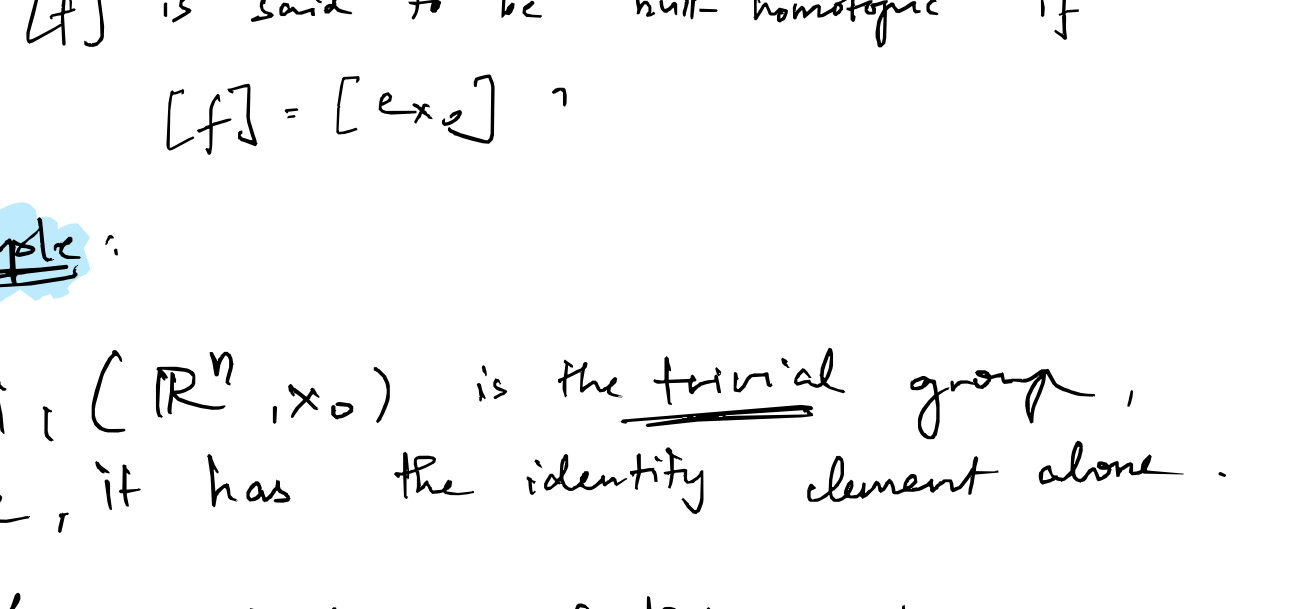 [f] is said to be null-homotopic if
[f] = [e_{x_0}] ,
ple :
π_1 (ℝ^n , x_0) is the trivial group ,
, it has the identity element alone .